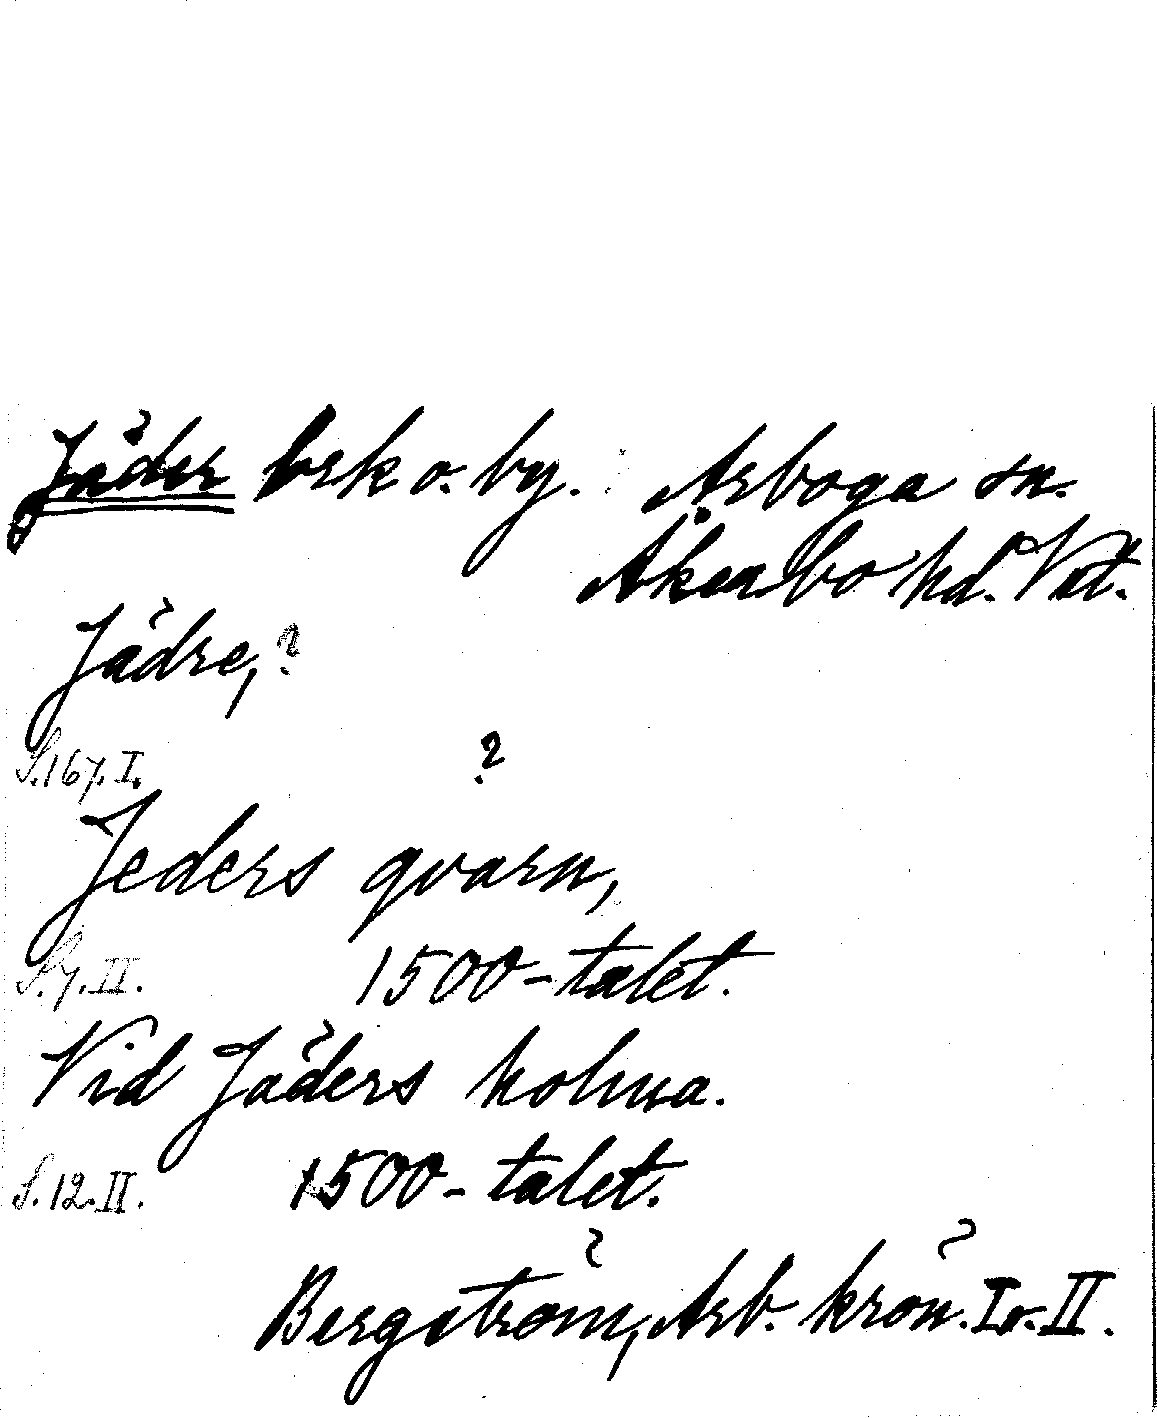 Jäder brk o. by. Arboga sn.
Åkerbo hd. Vst.
Jädre, ?
S. 167. I.
?
Jeders qvarn,
S. 7. II. 1500-talet.
Vid Jäders holma.
S. 12. II. 1500-talet.
Bergström, Arb. krön. I o. II.